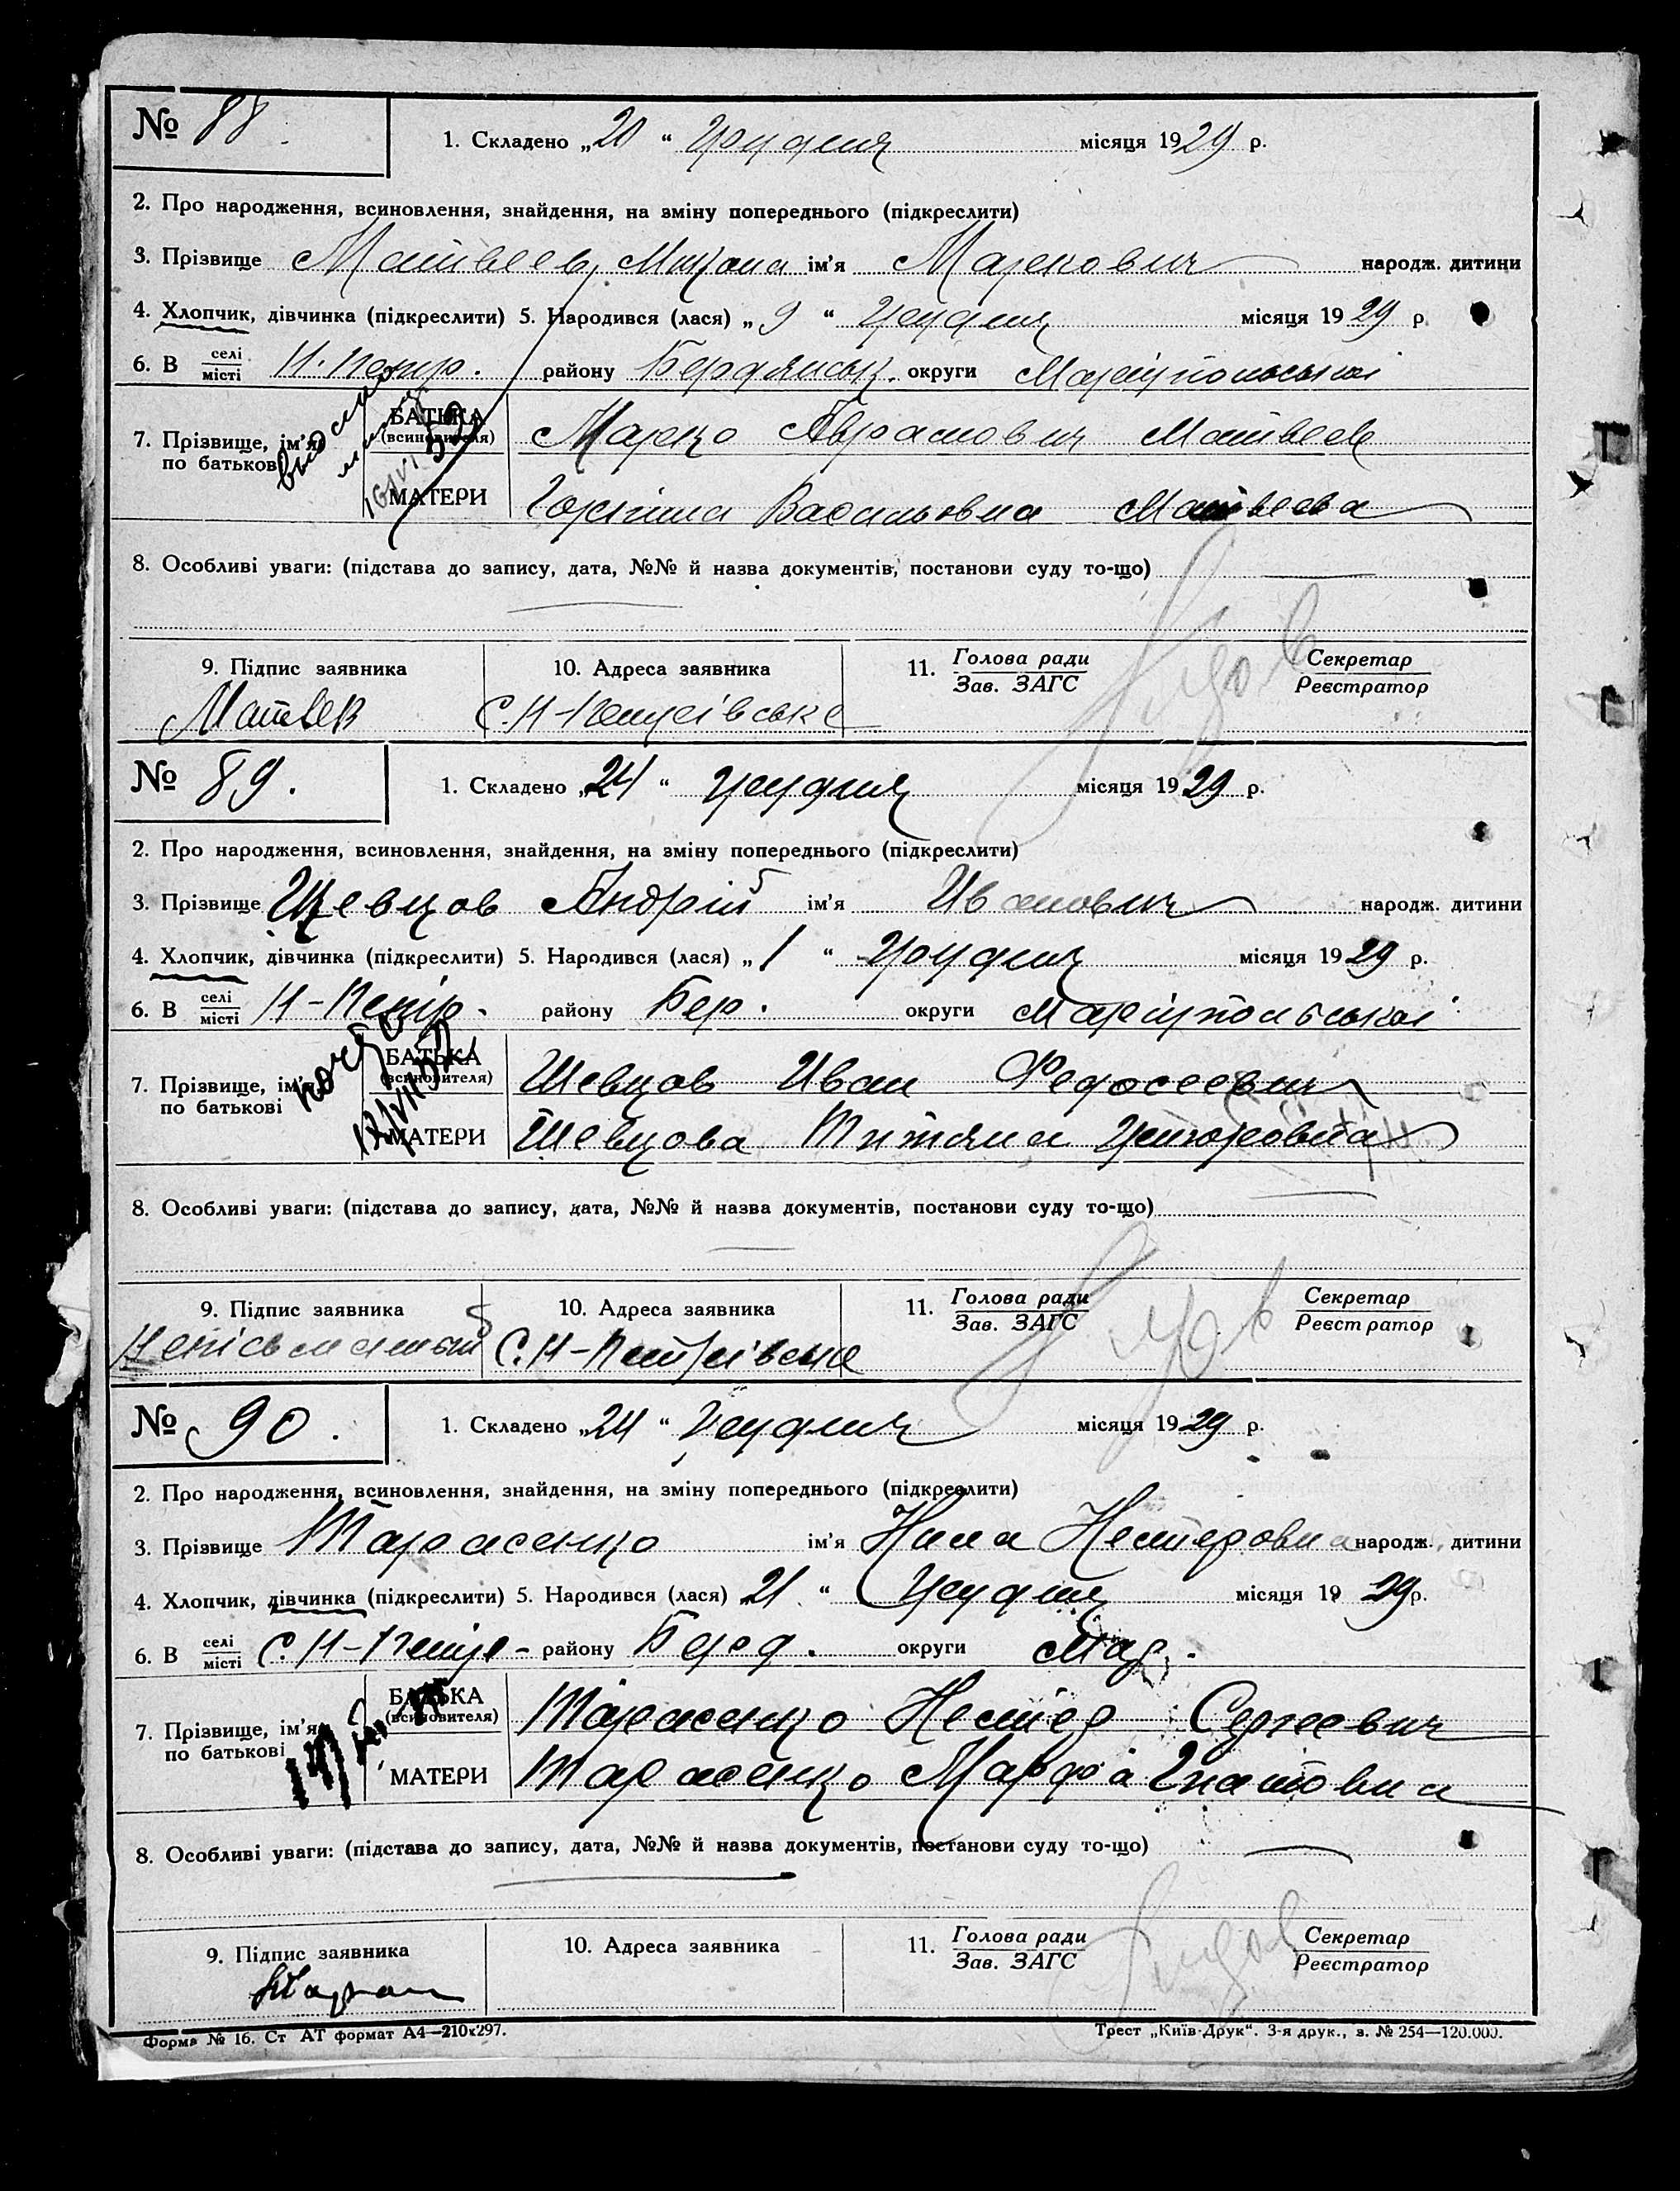 № 88.
1. Складено „20“ грудня місяця 1929 р.
2. Про народження, всиновлення, знайдення, на зміну попереднього (підкреслити)
3. Прізвище Матвеев, Микола ім'я Маркович народж. дитини
4. Хлопчик, дівчинка (підкреслити) 5. Народився (лася) „9“ грудня місяця 1929 р.
6. В селі/місті Н. Петр. району Бердянськ. округи Маріупольської
7. Прізвище, ім'я по батькові
БАТЬКА (всиновителя) Марко Аврамович Матвеев
МАТЕРИ Васильовна Матвеева
8. Особливі уваги: (підстава до запису, дата, №№ й назва документів, постанови суду то-що)
9. Підпис заявника 10. Адреса заявника 11. Голова ради/Зав. ЗАГС Секретар/Реєстратор
Матвев С. Н-Петрівське
№ 89.
1. Складено „24“ грудня місяця 1929 р.
2. Про народження, всиновлення, знайдення, на зміну попереднього (підкреслити)
3. Прізвище Шевцов Андрій ім'я Иванович народж. дитини
4. Хлопчик, дівчинка (підкреслити) 5. Народився (лася) „1“ грудня місяця 1929 р.
6. В селі/місті Н-Петр. району Бер. округи Маріупольської
7. Прізвище, ім'я по батькові
БАТЬКА (всиновителя) Шевцов Иван Федосеевич
МАТЕРИ Шевцова Титяна
8. Особливі уваги: (підстава до запису, дата, №№ й назва документів, постанови суду то-що)
9. Підпис заявника 10. Адреса заявника 11. Голова ради/Зав. ЗАГС Секретар/Реєстратор
С. Н-Петрівське
№ 90.
1. Складено „24“ грудня місяця 1929 р.
2. Про народження, всиновлення, знайдення, на зміну попереднього (підкреслити)
3. Прізвище Тарасенко ім'я Нина Нестеровна народж. дитини
4. Хлопчик, дівчинка (підкреслити) 5. Народився (лася) 21 “ грудня місяця 1929 р.
6. В селі/місті С. Н-Петр- району Берд. округи Мар.
7. Прізвище, ім'я по батькові
БАТЬКА (всиновителя) Тарасенко Нестер Сергеевич
МАТЕРИ Тарасенко Марфа Гнатовна
8. Особливі уваги: (підстава до запису, дата, №№ й назва документів, постанови суду то-що)
9. Підпис заявника 10. Адреса заявника 11. Голова ради/Зав. ЗАГС Секретар/Реєстратор
Форма № 16. Ст АТ формат А4—210х297. Трест „Київ-Друк“. 3-я друк., з. № 254—120.000.